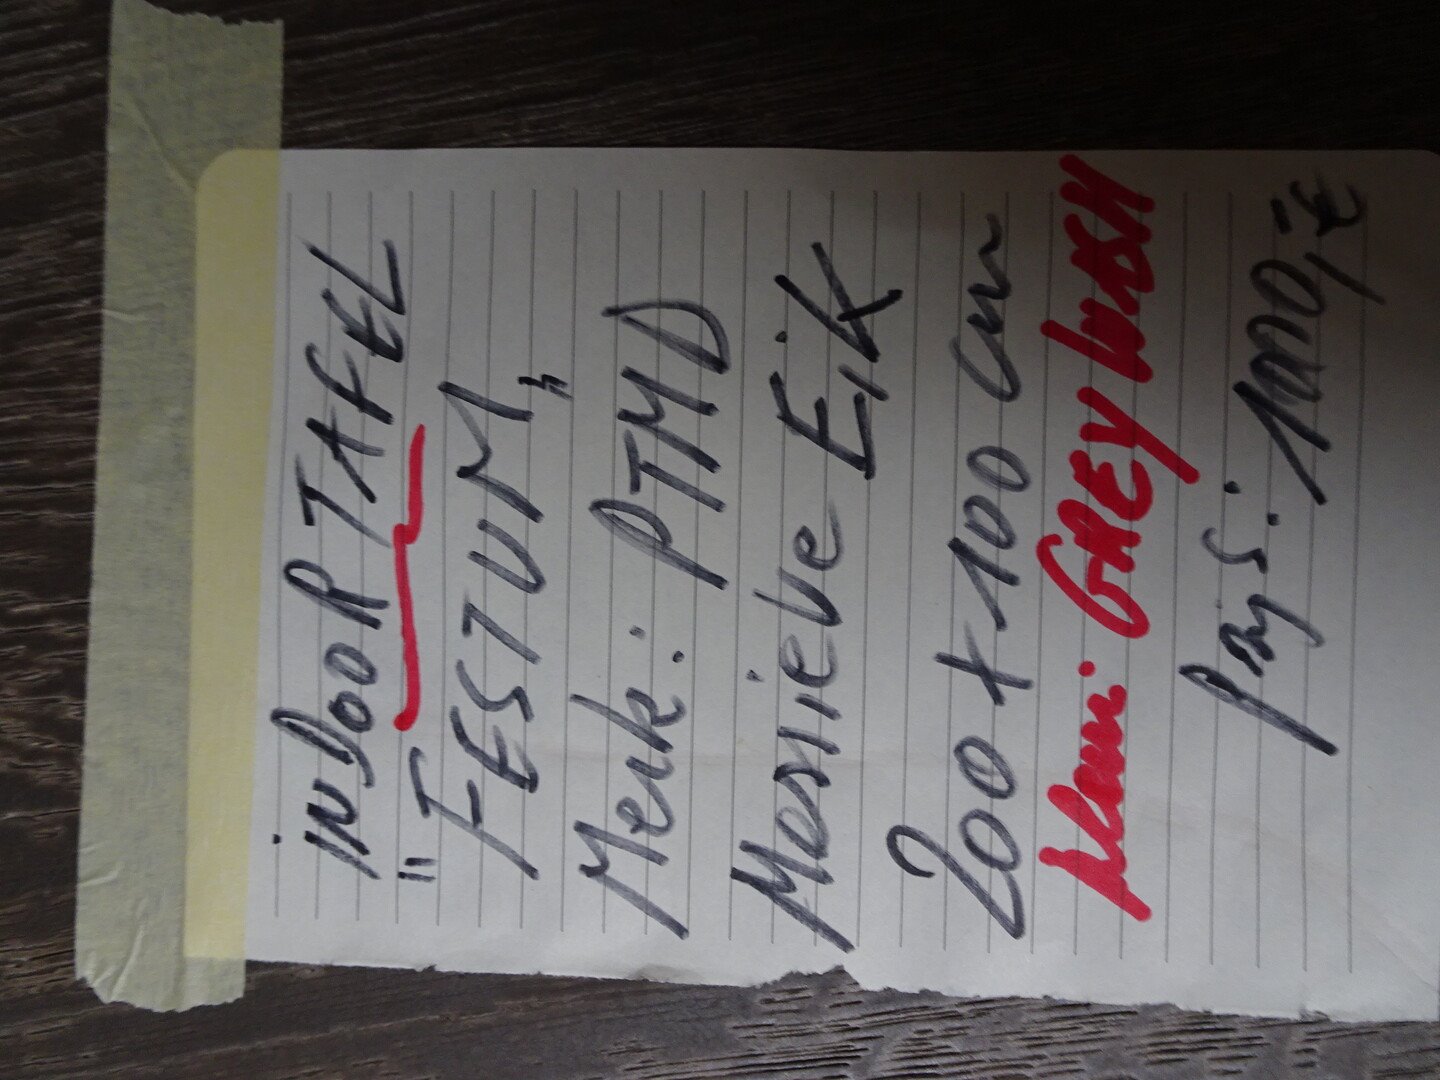 INDOOR TAFEL
"FESTUM"
Merk: PTMD
Massieve EiK
200 x 100 cm
kleur: GREY WASH
Prijs: 1000,-€